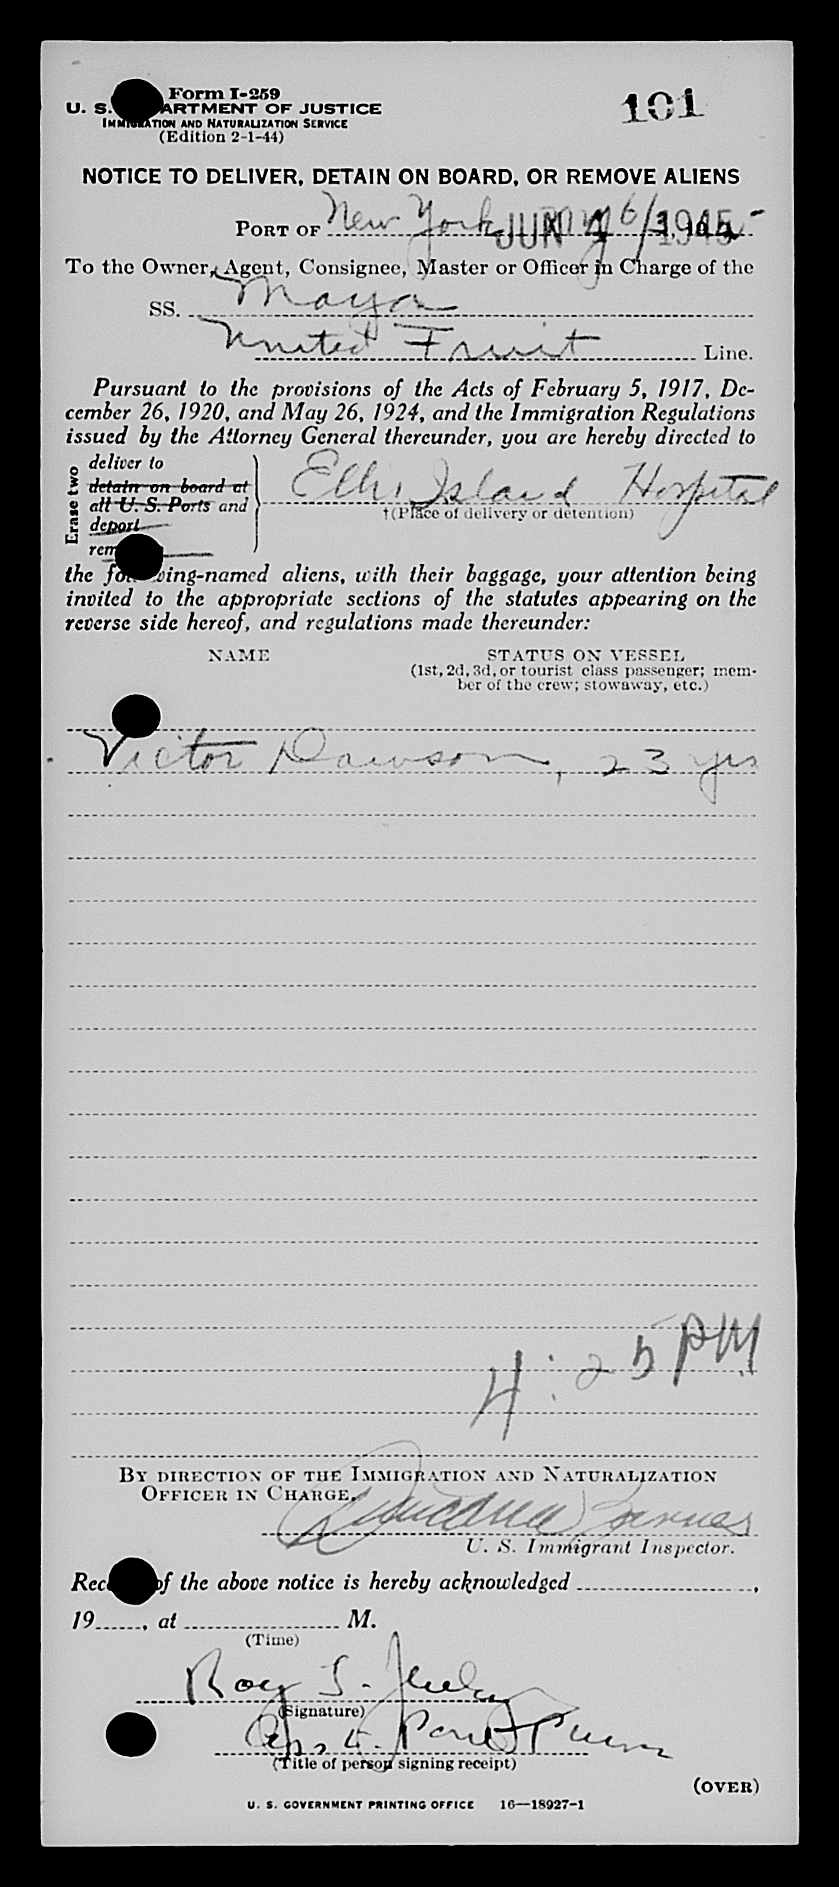 Form I-259
101
U. S. DEPARTMENT OF JUSTICE
IMMIGRATION AND NATURALIZATION SERVICE
(Edition 2-1-44)
NOTICE TO DELIVER, DETAIN ON BOARD, OR REMOVE ALIENS
PORT OF New York JUN 4 1945
To the Owner, Agent, Consignee, Master or Officer in Charge of the
SS. Maya
United Fruit Line.
Pursuant to the provisions of the Acts of February 5, 1917, De-
cember 26, 1920, and May 26, 1924, and the Immigration Regulations
issued by the Attorney General thereunder, you are hereby directed to
Erase two
deliver to
detain on board at
all U. S. Ports and
deport
Ellis Island Hospital
†(Place of delivery or detention)
the following-named aliens, with their baggage, your attention being
invited to the appropriate sections of the statutes appearing on the
reverse side hereof, and regulations made thereunder:
NAME STATUS ON VESSEL
(1st, 2d, 3d, or tourist class passenger; mem-
ber of the crew; stowaway, etc.)
Victor Dawson, 23 yrs
4:25 PM
BY DIRECTION OF THE IMMIGRATION AND NATURALIZATION
OFFICER IN CHARGE,
U. S. Immigrant Inspector.
Rec of the above notice is hereby acknowledged
19 , at M.
(Time)
Roy S.
(Signature)
(Title of person signing receipt)
(OVER)
U. S. GOVERNMENT PRINTING OFFICE 16—18927-1